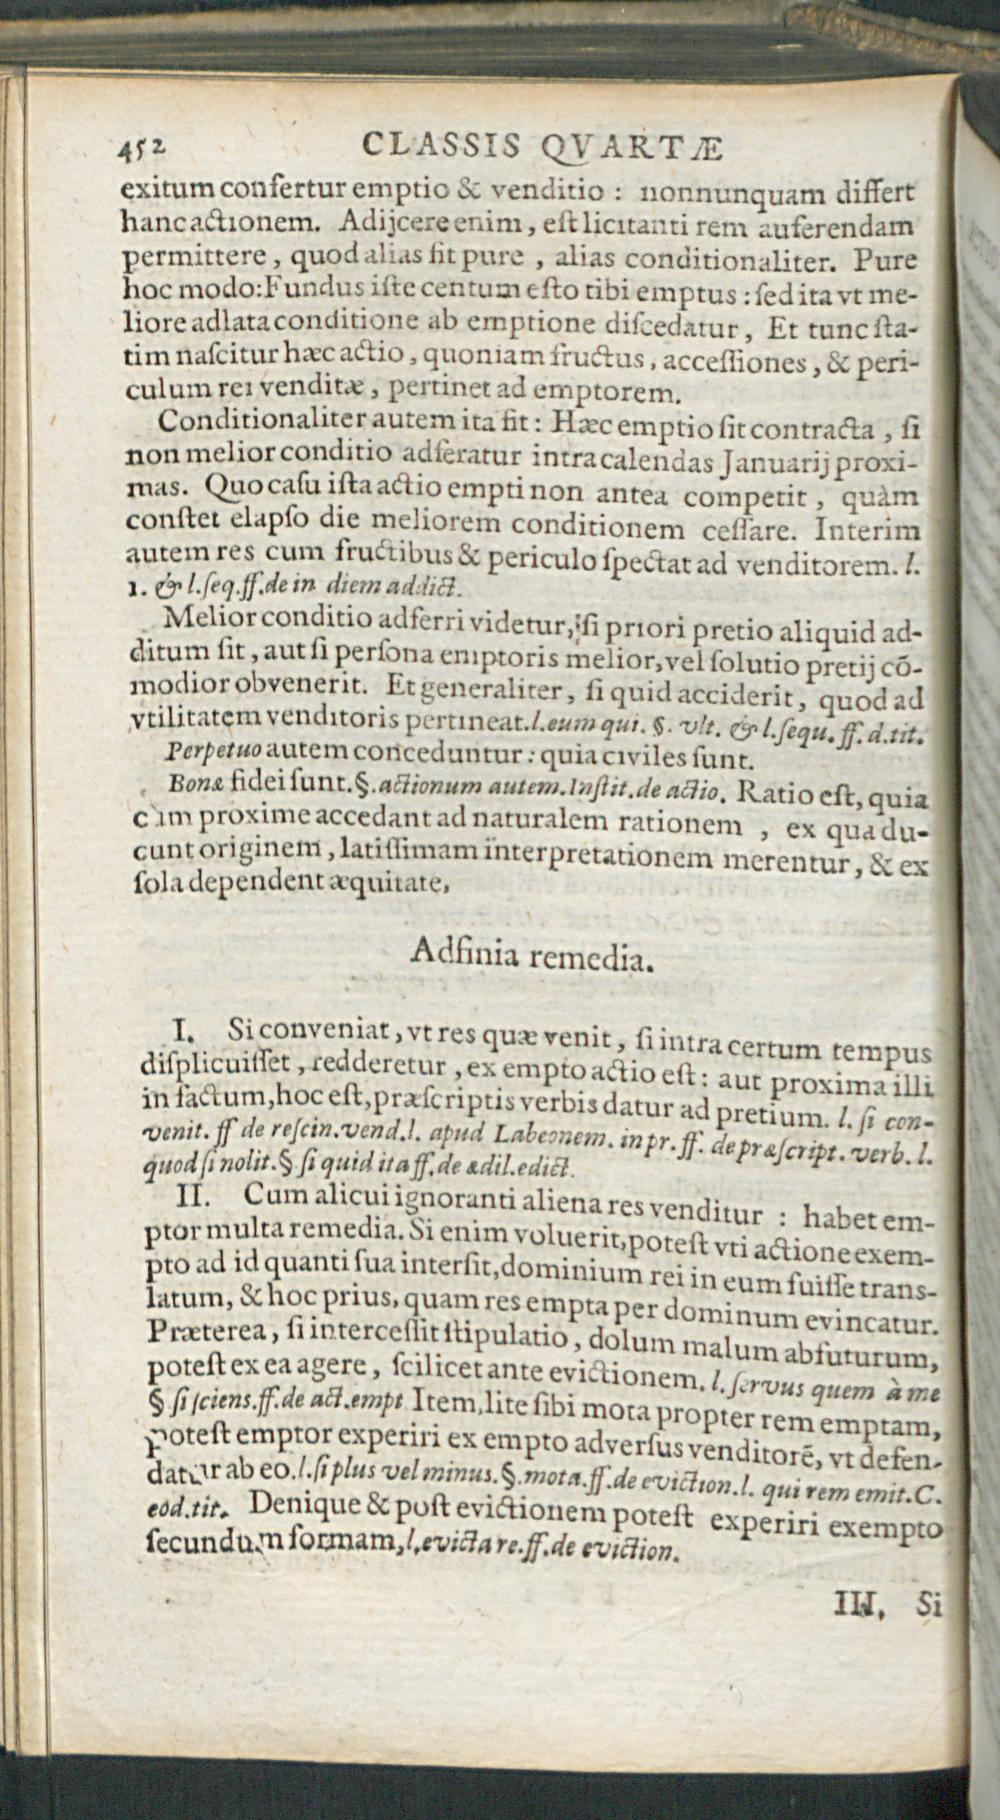 452 CLASSIS QVARTÆ
exitum confertur emptio & venditio : nonnunquam differt
hanc actionem. Adijcere enim, est licitanti rem auferendam
permittere, quod alias fit pure, alias conditionaliter. Pure
hoc modo: Fundus iste centum esto tibi emptus : sed ita vt me-
liore adlata conditione ab emptione discedatur, Et tunc sta-
tim nascitur hæc actio, quoniam fructus, accessiones, & peri-
culum rei venditæ, pertinet ad emptorem.
Conditionaliter autem ita fit : Hæc emptio sit contracta, si
non melior conditio adferatur intra calendas Januarij proxi-
mas. Quo casu ista actio empti non antea competit, quàm
constet elapso die meliorem conditionem cessare. Interim
autem res cum fructibus & periculo spectat ad venditorem. l.
1. & l. seq. ff. de in diem addict.
Melior conditio adferri videtur, si priori pretio aliquid ad-
ditum sit, aut si persona emptoris melior, vel solutio pretij cõ-
modior obvenerit. Et generaliter, si quid acciderit, quod ad
vtilitatem venditoris pertineat. l. eum qui. §. vlt. & l. sequ. ff. d. tit.
Perpetuo autem conceduntur : quia civiles sunt.
Bonæ fidei sunt. §. actionum autem. Instit. de actio. Ratio est, quia
cùm proxime accedant ad naturalem rationem, ex qua du-
cunt originem, latissimam interpretationem merentur, & ex
sola dependent æquitate,
Adfinia remedia.
I. Si conveniat, vt res quæ venit, si intra certum tempus
displicuisset, redderetur, ex empto actio est : aut proxima illi
in factum, hoc est, præscriptis verbis datur ad pretium. l. si con-
venit. ff de rescin. vend. l. apud Labeonem. in pr. ff. de præscript. verb. l.
quod si nolit. § si quid ita ff. de ædil. edict.
II. Cum alicui ignoranti aliena res venditur : habet em-
ptor multa remedia. Si enim voluerit, potest vti actione exem-
pto ad id quanti sua intersit, dominium rei in eum fuisse trans-
latum, & hoc prius, quam res empta per dominum evincatur.
Præterea, si intercessit stipulatio, dolum malum abfuturum,
potest ex ea agere, scilicet ante evictionem. l. servus quem à me
§ si sciens. ff. de act. empt Item, lite sibi mota propter rem emptam,
potest emptor experiri ex empto adversus venditorẽ, vt defen-
datur ab eo. l. si plus vel minus. §. mota. ff. de eviction. l. qui rem emit. C.
eod. tit. Denique & post evictionem potest experiri exempto
secundum formam, l. evicta re. ff. de eviction.
III. Si